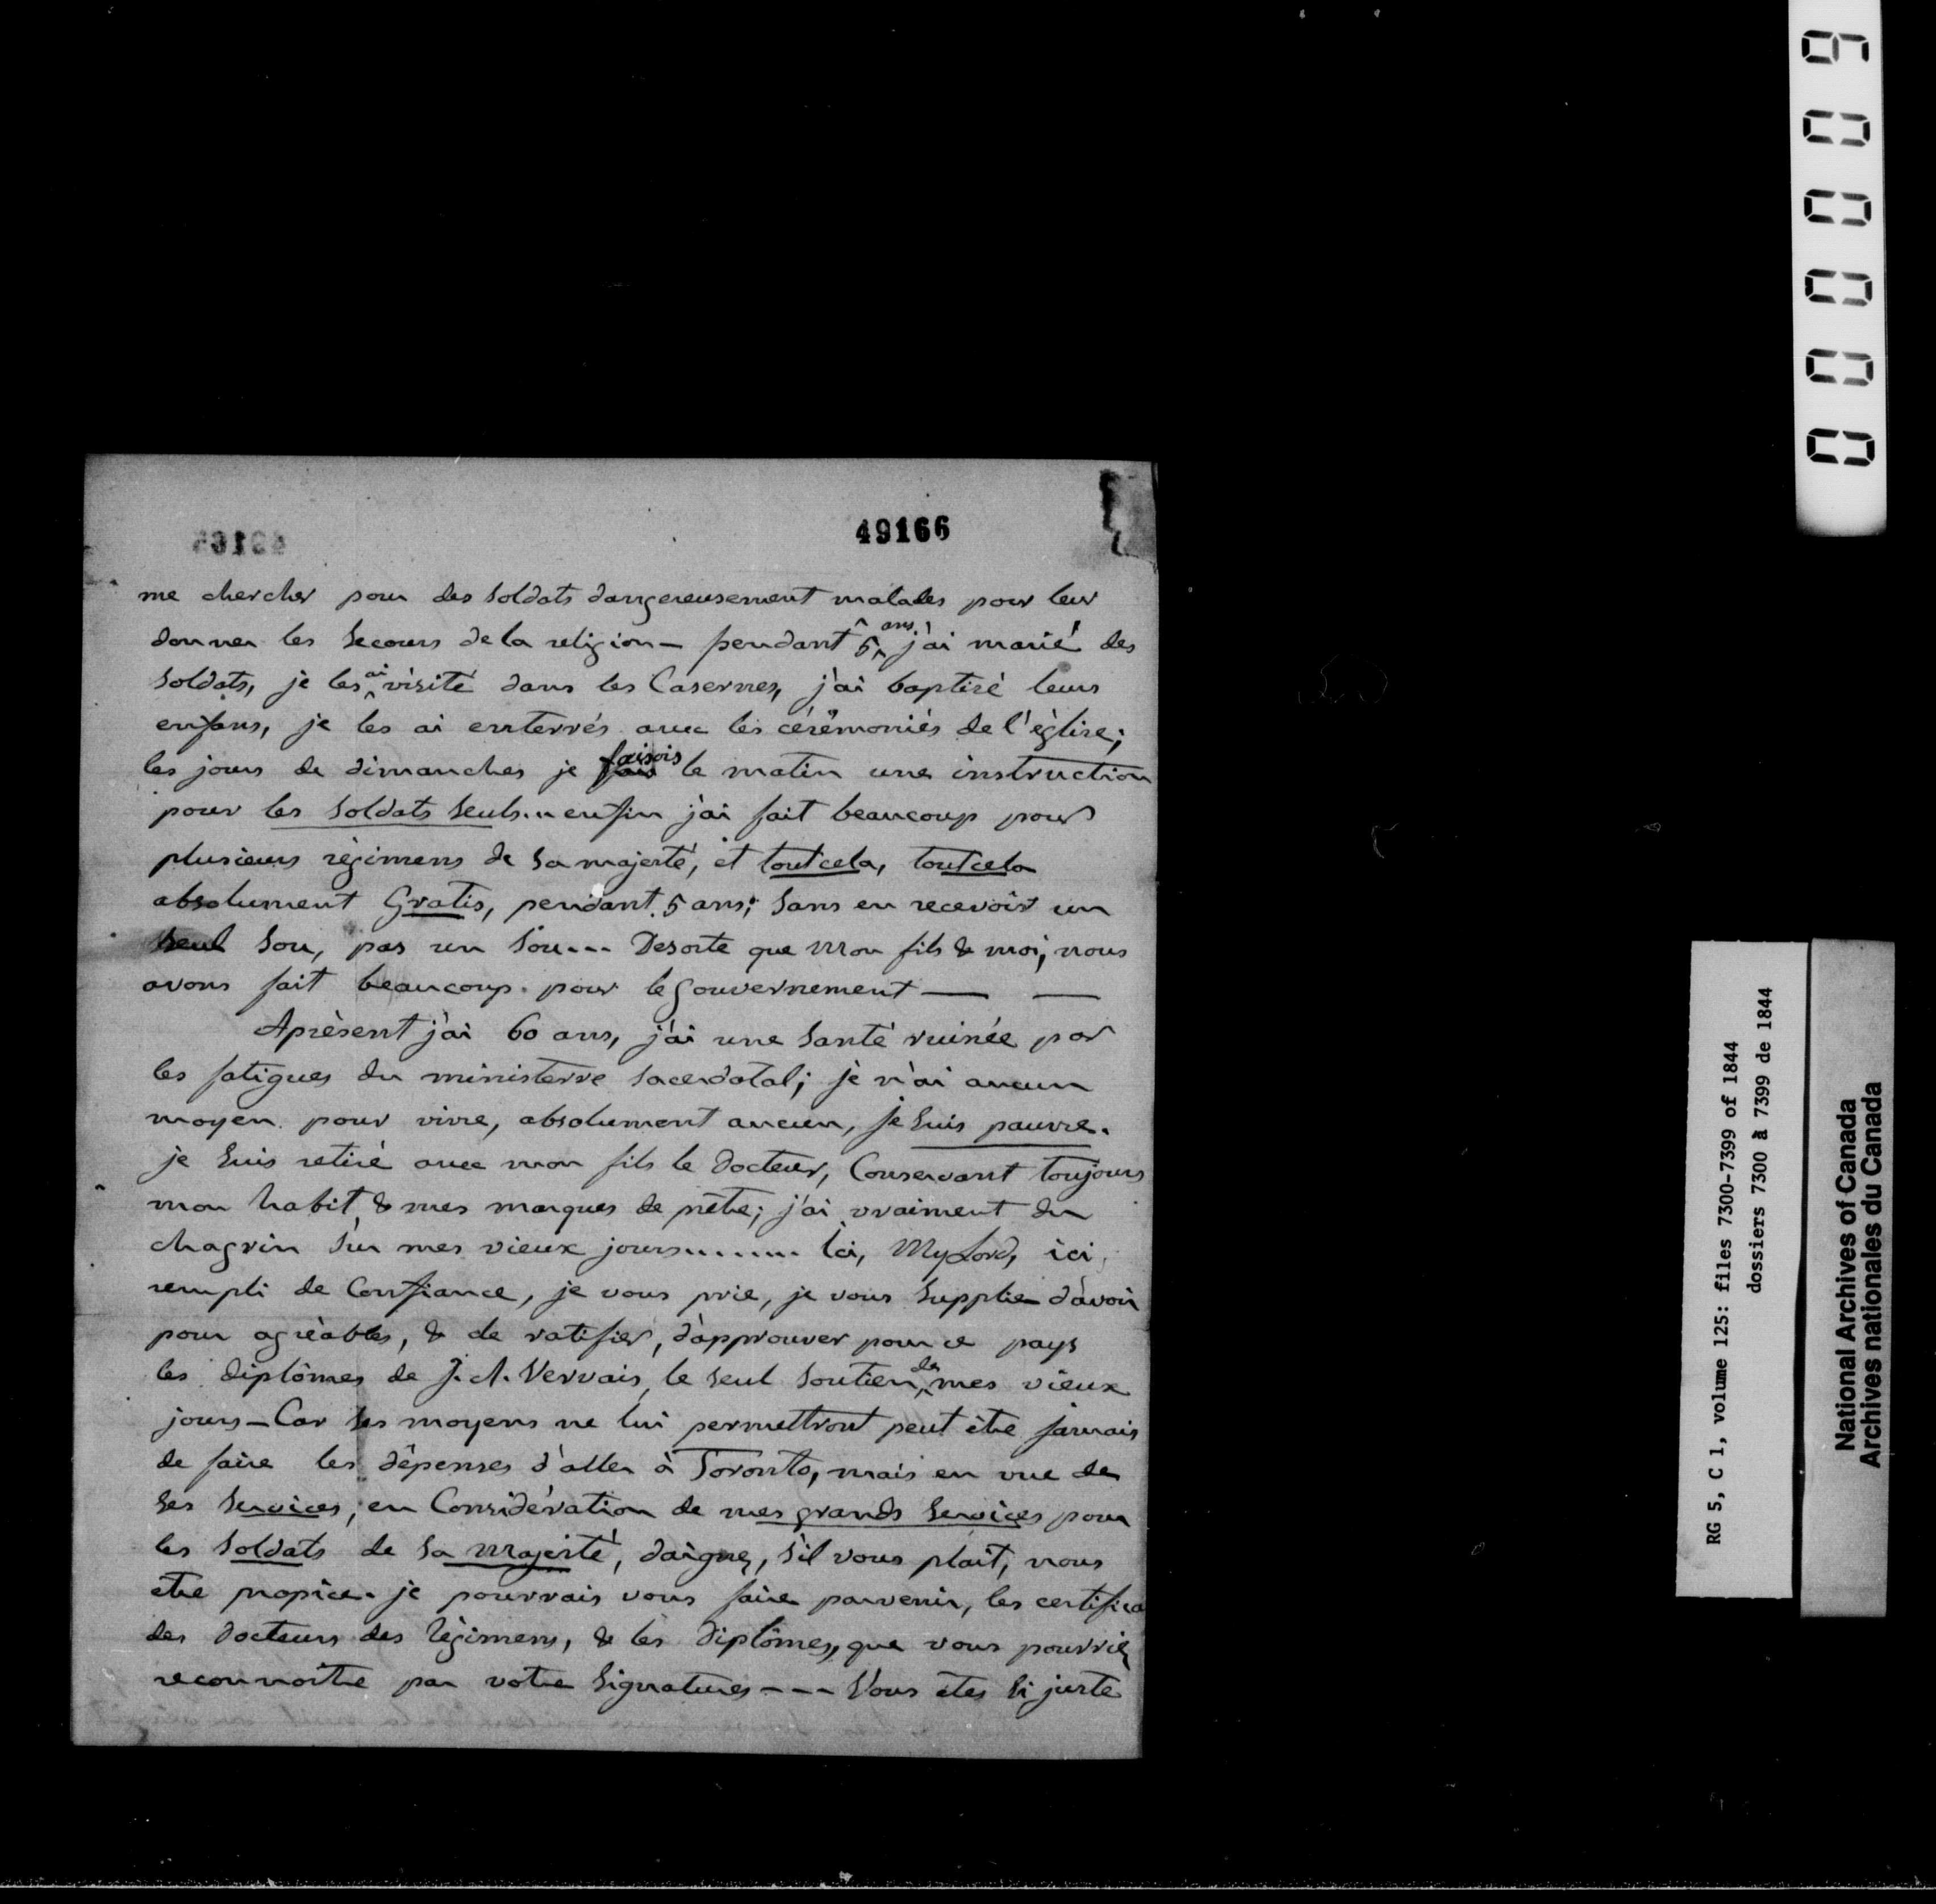 49166
me chercher pour des soldats dangereusement malades pour leur
donner les secours de la religion — pendant 5 ans j'ai marié des
soldats, je les ai visité dans les Casernes, j'ai baptisé leurs
enfans, je les ai enterrés avec les cérémonies de l'église;
les jours de dimanches je faisois le matin une instruction
pour les soldats seuls... enfin j'ai fait beaucoup pour
plusieurs régimens de sa majesté, et tout cela, tout cela
absolument Gratis, pendant 5 ans; sans en recevoir un
seul sou, pas un sou... Desorte que mon fils & moi, nous
avons fait beaucoup pour le gouvernement — —
Aprèsent j'ai 60 ans, j'ai une santé ruinée par
les fatigues du ministerre sacerdotal; je n'ai aucun
moyen pour vivre, absolument aucun, je suis pauvre.
je suis retiré avec mon fils le docteur, Conservant toujours
mon habit & mes marques de prêtre; j'ai vraiment du
chagrin sur mes vieux jours....... Ici, My Lord, ici,
rempli de Confiance, je vous prie, je vous supplie d'avoir
pour agréables, & de ratifier, d'approuver pour ce pays
les diplômes de J. A. Vervais, le seul soutien de mes vieux
jours — Car ses moyens ne lui permettront peut être jamais
de faire les dépenses d'aller à Toronto, mais en vue de
ses services, en Considération de mes grands services pour
les soldats de sa majesté, daignez, s'il vous plait, nous
être propice. je pourrais vous faire parvenir, les certifica
des docteurs des régimens, & les diplômes, que vous pourriez
reconnoitre par votre signatures --- Vous êtes si juste
000009
RG 5, C 1, volume 125: files 7300-7399 of 1844
dossiers 7300 à 7399 de 1844
National Archives of Canada
Archives nationales du Canada